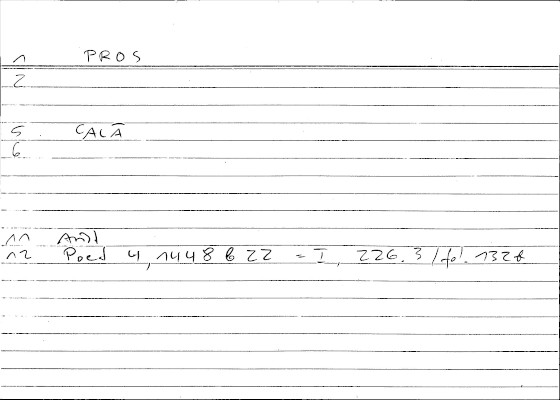 1 PROS
2
5 . CALĀ
6
11 Aristot
12 Poet 4, 1448 b 22 = I, 226.3 / fol. 132a